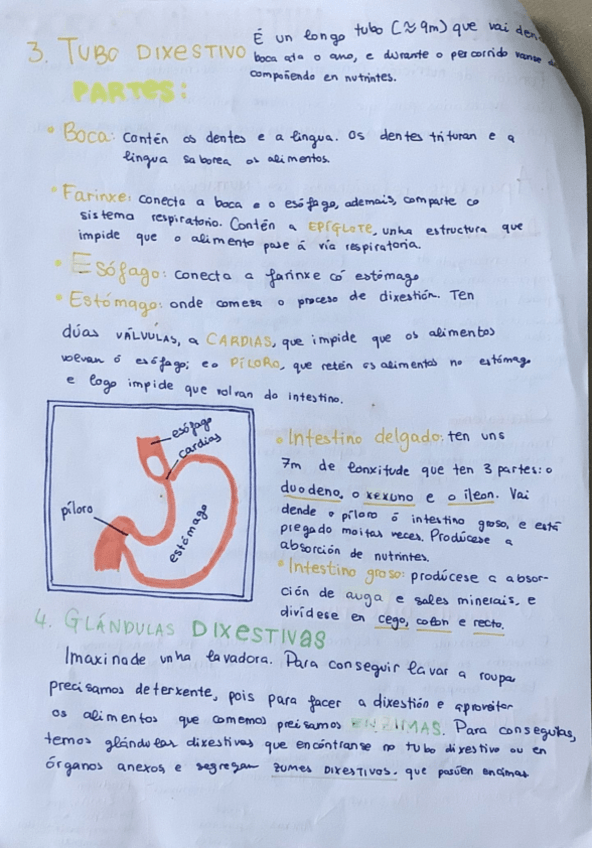 3. TUBO DIXESTIVO
É un longo tubo (≈9m) que vai den
boca ata o ano, e durante o percorrido vanse
compoñendo en nutrintes.
PARTES:
• Boca: contén os dentes e a lingua. Os dentes trituran e a
lingua saborea os alimentos.
• Farinxe: conecta a boca e o esófago, ademais, comparte co
sistema respiratorio. Contén a EPÍGLOTE, unha estructura que
impide que o alimento pase á vía respiratoria.
• Esófago: conecta a farinxe có estómago
• Estómago: onde comeza o proceso de dixestión. Ten
dúas VÁLVULAS, a CARDIAS, que impide que os alimentos
volvan ó esófago; e o PÍLORO, que retén os alimentos no estómago
e logo impide que volvan do intestino.
esófago
cardias
píloro
estómago
• Intestino delgado: ten uns
7m de lonxitude que ten 3 partes: o
duodeno, o xexuno e o íleon. Vai
dende o píloro ó intestino groso, e está
pregado moitas veces. Prodúcese a
absorción de nutrintes.
• Intestino groso: prodúcese a absor-
ción de auga e sales minerais, e
divídese en cego, colon e recto.
4. GLÁNDULAS DIXESTIVAS
Imaxinade unha lavadora. Para conseguir lavar a roupa
precisamos deterxente, pois para facer a dixestión e aproveitar
os alimentos que comemos precisamos ENZIMAS. Para conseguilas,
temos glándulas dixestivas que encóntranse no tubo dixestivo ou en
órganos anexos, e segregan zumes DIXESTIVOS, que posúen encimas